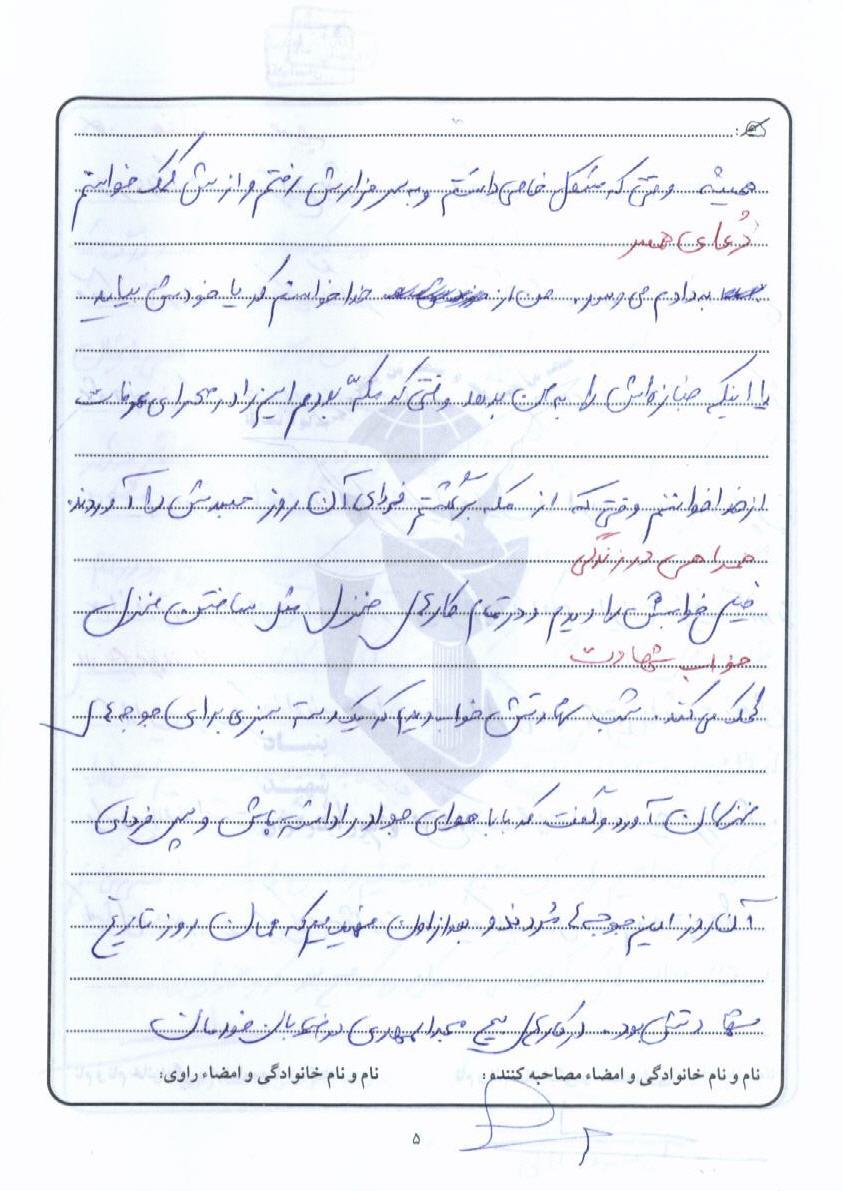 همیشه وقتی که مشکل خاصی داشتم و به سر مزارش رفتم و ازش کمک خواستم
دعای همسر
به دادم می رسد. من از خدا خواستم که یا خودش بیاید
یا اینکه جنازه اش را به من بدهد وقتی که مکه بودم این را در صحرای عرفات
از خدا خواستم وقتی که از مکه برگشتم فردای آن روز جسدش را آوردند.
همراهی در زندگی
خیلی خوابش را دیدم و در تمام کارهای منزل مثل ساختن منزل
خواب شهادت
کمک می کند. شب شهادتش خواب دیدم که یک دسته سبزی برای جوجه های
منزلمان آورد و گفت که بابا هوای جواد را داشته باش و پس فردای
آن روز این جوجه ها مردند و بعد از اون فهمیدیم که همان روز تاریخ
شهادتش بود. در کارهای مسجد المهدی در خیابان خودمان
نام و نام خانوادگی و امضاء مصاحبه کننده: نام و نام خانوادگی و امضاء راوی:
۵